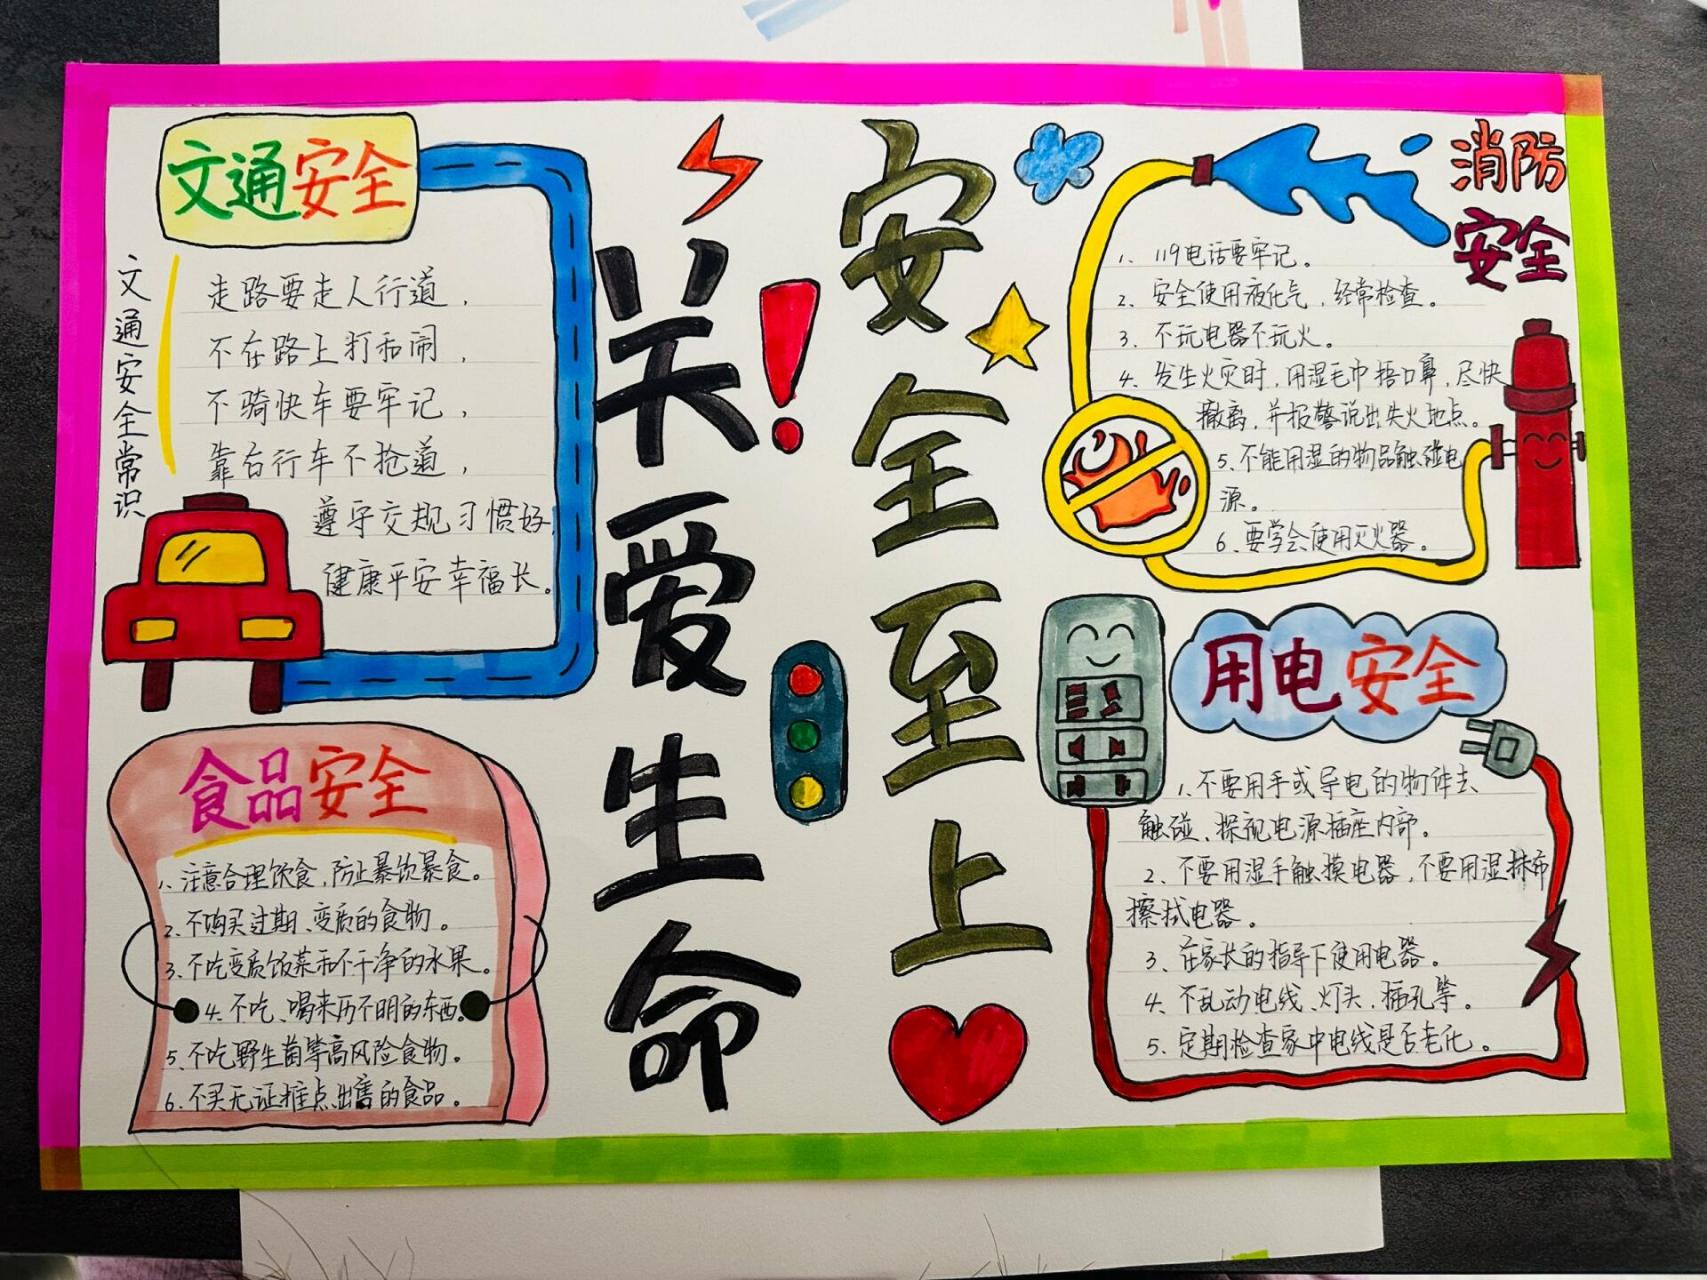 文通安全
文通安全常识
走路要走人行道，
不在路上打和闹，
不骑快车要牢记，
靠右行车不抢道，
遵守交规习惯好，
健康平安幸福长。
食品安全
1、注意合理饮食，防止暴饮暴食。
2、不购买过期、变质的食物。
3、不吃变质饭菜和不干净的水果。
4、不吃、喝来历不明的东西。
5、不吃野生菌等高风险食物。
6、不买无证摊点出售的食品。
关爱生命
安全至上
消防
安全
1、119电话要牢记。
2、安全使用液化气，经常检查。
3、不玩电器不玩火。
4、发生火灾时，用湿毛巾捂口鼻，尽快
撤离，并报警说出失火地点。
5、不能用湿的物品触碰电
源。
6、要学会使用灭火器。
用电安全
1、不要用手或导电的物件去
触碰、探视电源插座内部。
2、不要用湿手触摸电器，不要用湿抹布
擦拭电器。
3、在家长的指导下使用电器。
4、不乱动电线、灯头、插孔等。
5、定期检查家中电线是否老化。